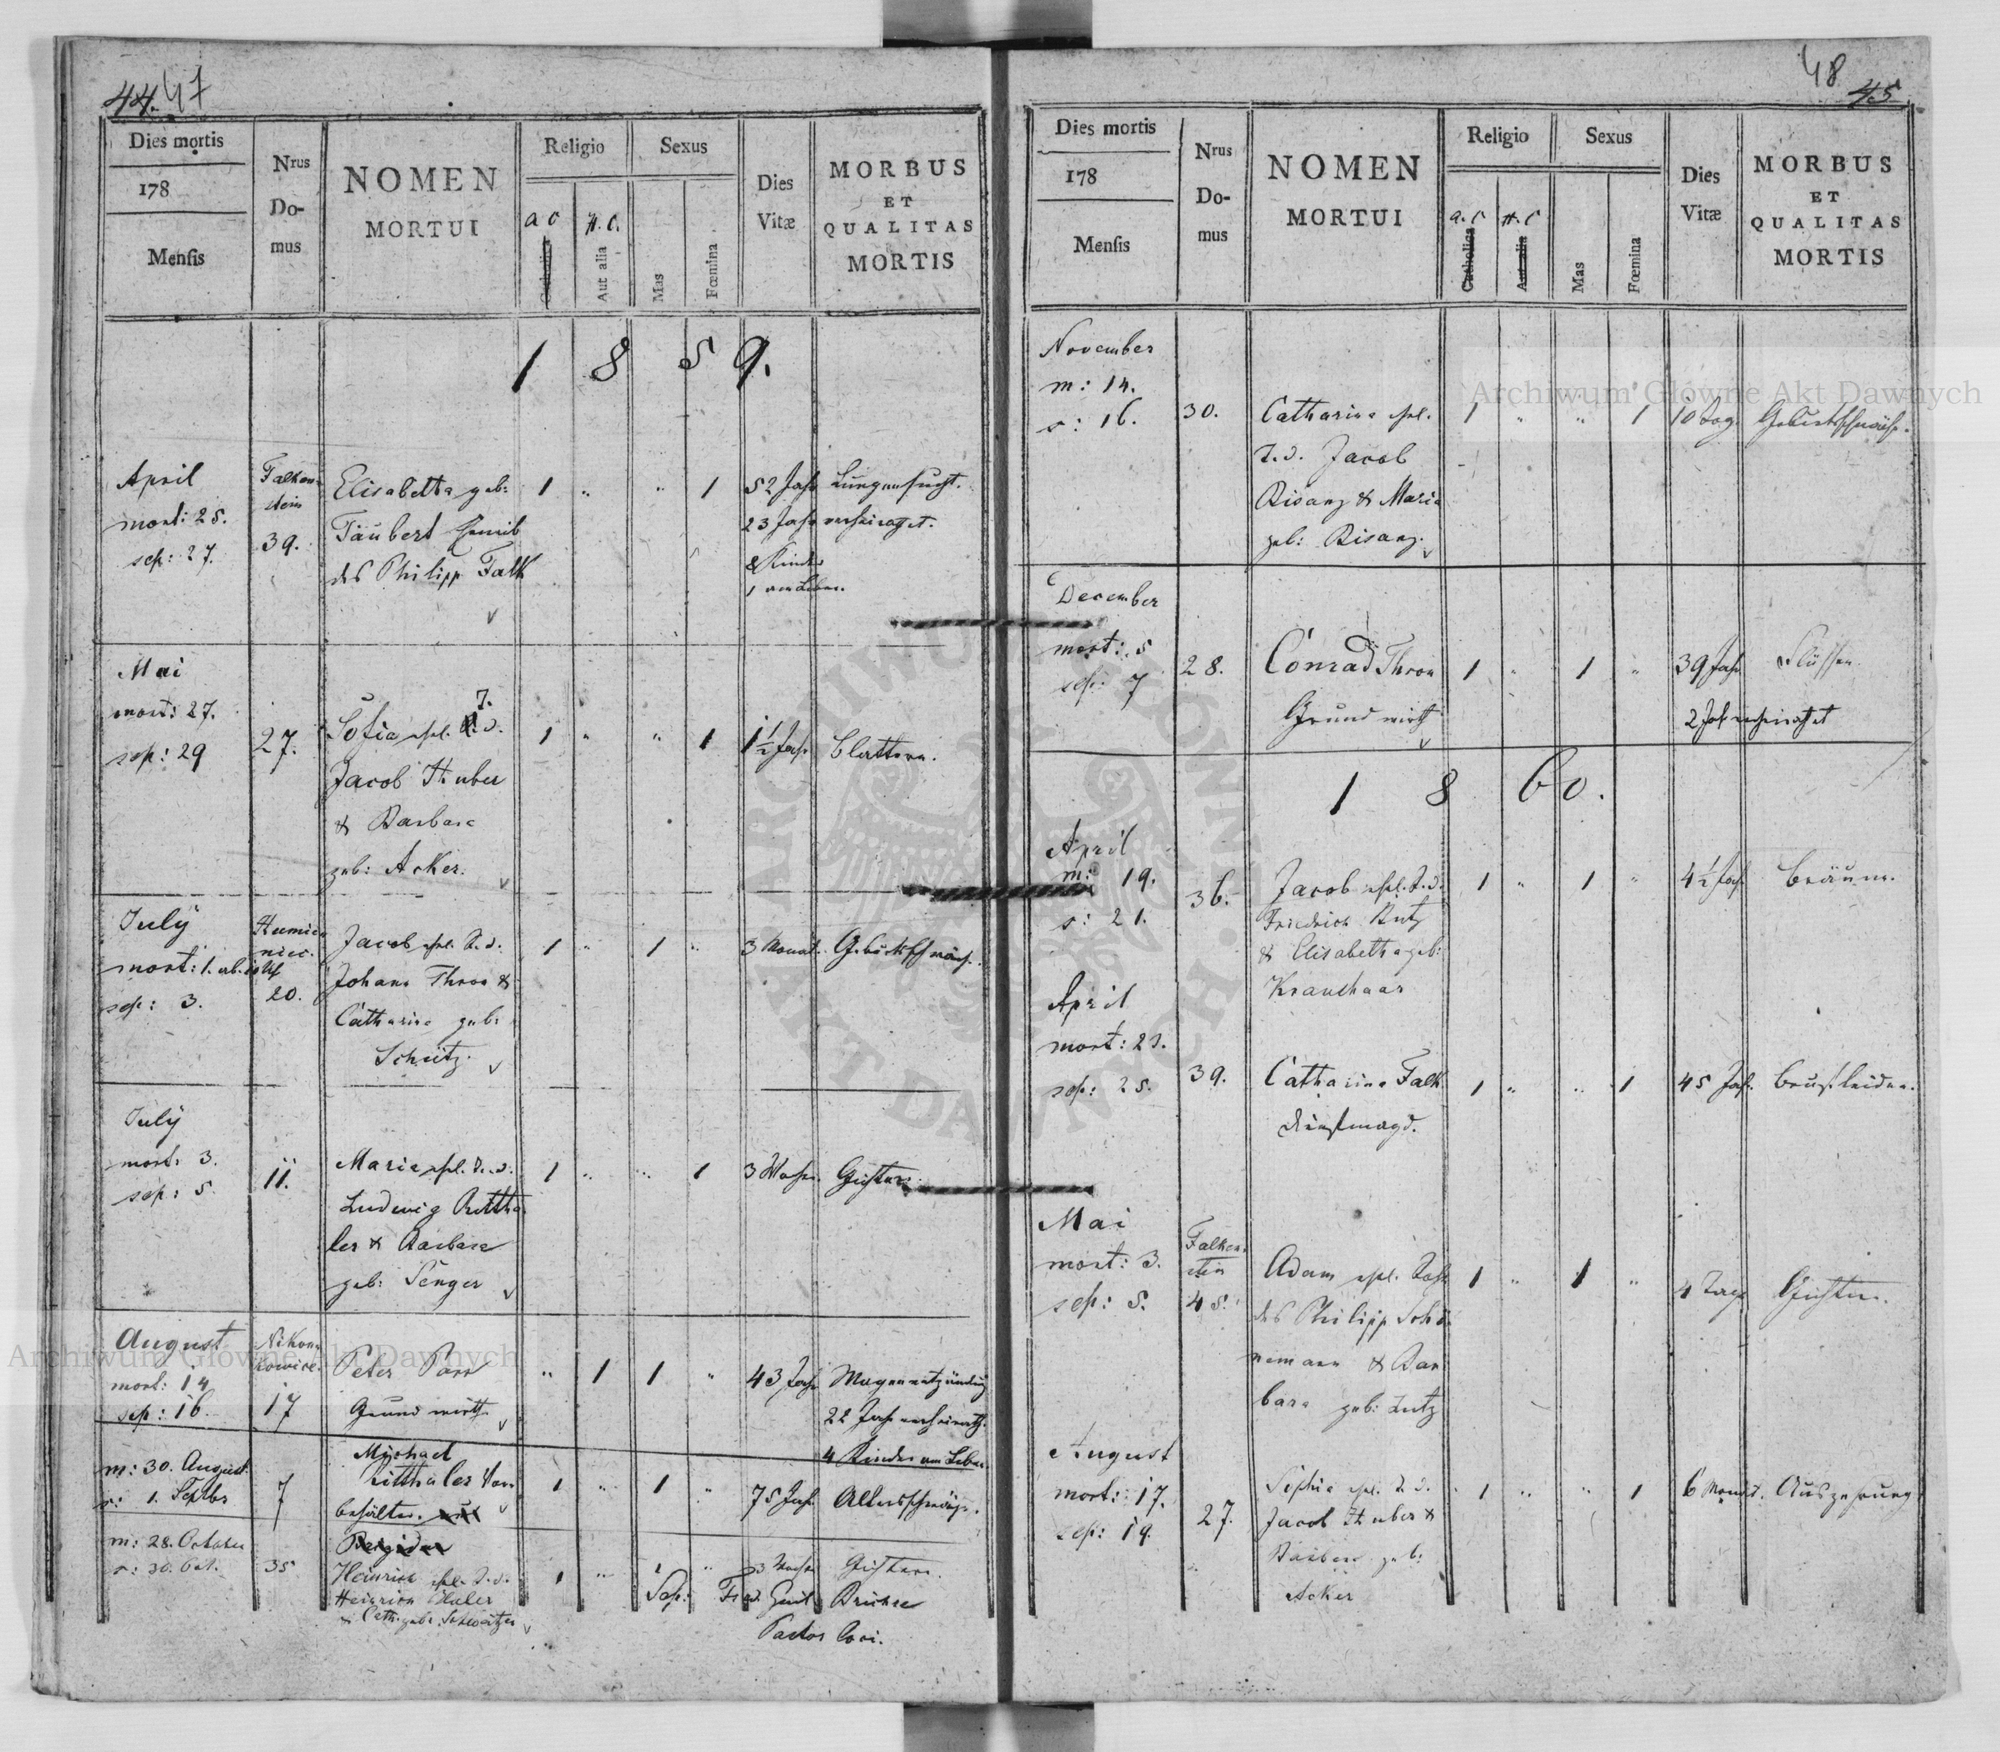 44. 47
Dies mortis
178
Mensis
Nrus
Do-
mus
NOMEN
MORTUI
Religio
a c
Catholica
H. C.
Aut alia
Sexus
Mas
Fœmina
Dies
Vitæ
MORBUS
ET
QUALITAS
MORTIS
1859.
April
mort: 25.
sep: 27.
Falken-
stein
39.
Elisabetha geb:
Taubert
des Philipp Falk
1 " " 1
52 Jahr
23 Jahr verheirathet.
Kinder
1 am Leben.
Lungensucht.
Mai
mort: 27.
sep: 29
27.
Sofia ehl. T. d.
Jacob Huber
& Barbara
geb: Acker.
1 " " 1
1½ Jahr
Blattern.
July
mort: 1.
sep: 3.
20.
Jacob ehl. S. d.
Johann Thron &
Catharina geb:
Schütz.
1 " 1 "
3 Monat
Geburtsschwäche.
July
mort: 3.
sep: 5.
11.
Maria ehl. T. d.
Ludwig Rettha
ler & Barbara
geb: Senger
1 " " 1
3 Woch.
Gichter.
August
mort: 14
sep: 16.
Nikon-
kowice.
17
Peter Parr
Grundwirth
" 1 1 "
43 Jahr
Magenentzündung
22 Jahr verheirath.
4 Kinder am Leben
m: 30. August
s: 1. Septbr
7
Michael
Litthaler Vor-
behälter.
1 " 1 "
75 Jahr
Altersschwäche.
m: 28. October
s: 30. Oct.
35
Heinrich ehl. S. d.
Heinrich Huber
& Cath. geb: Schweitzer
1 "
3 Woche
Gichtern.
Pastor loci.
48
45
Dies mortis
178
Mensis
Nrus
Do-
mus
NOMEN
MORTUI
Religio
a. C
Catholica
H. C
Aut alia
Sexus
Mas
Fœmina
Dies
Vitæ
MORBUS
ET
QUALITAS
MORTIS
November
m: 14.
s: 16.
30.
Catharina ehl.
T. d. Jacob
Bisanz & Maria
geb: Bisanz.
1 " " 1
10 Tag.
Geburtsschwäche.
December
mort: 5
sep: 7
28.
Conrad Thron
Grundwirth
1 " 1 "
39 Jahr
2 Jahr verheirathet
1860.
April
m: 19.
s: 21.
36.
Jacob ehl. S. d.
Friedrich Butz
& Elisabetha geb:
Kraushaar
1 " 1 "
4½ Jahr
Bräune.
April
mort: 23.
sep: 25.
39.
Catharina Falk
Dienstmagd.
1 " " 1
45 Jahr.
Brustleiden.
Mai
mort: 3.
sep: 5.
Falken-
stein
45.
Adam ehl. Sohn
des Philipp Schö-
nemann & Bar-
bara geb: Lutz
1 " 1 "
4 Tage
Gichter.
August
mort: 17.
sep: 19.
27.
Sophia ehl. T. d.
Jacob Huber &
Barbara geb:
Acker
1 " " 1
6 Monat.
Auszehrung
Archiwum Główne Akt Dawnych
Archiwum Główne Akt Dawnych
ARCHIWUM GŁÓWNE AKT DAWNYCH